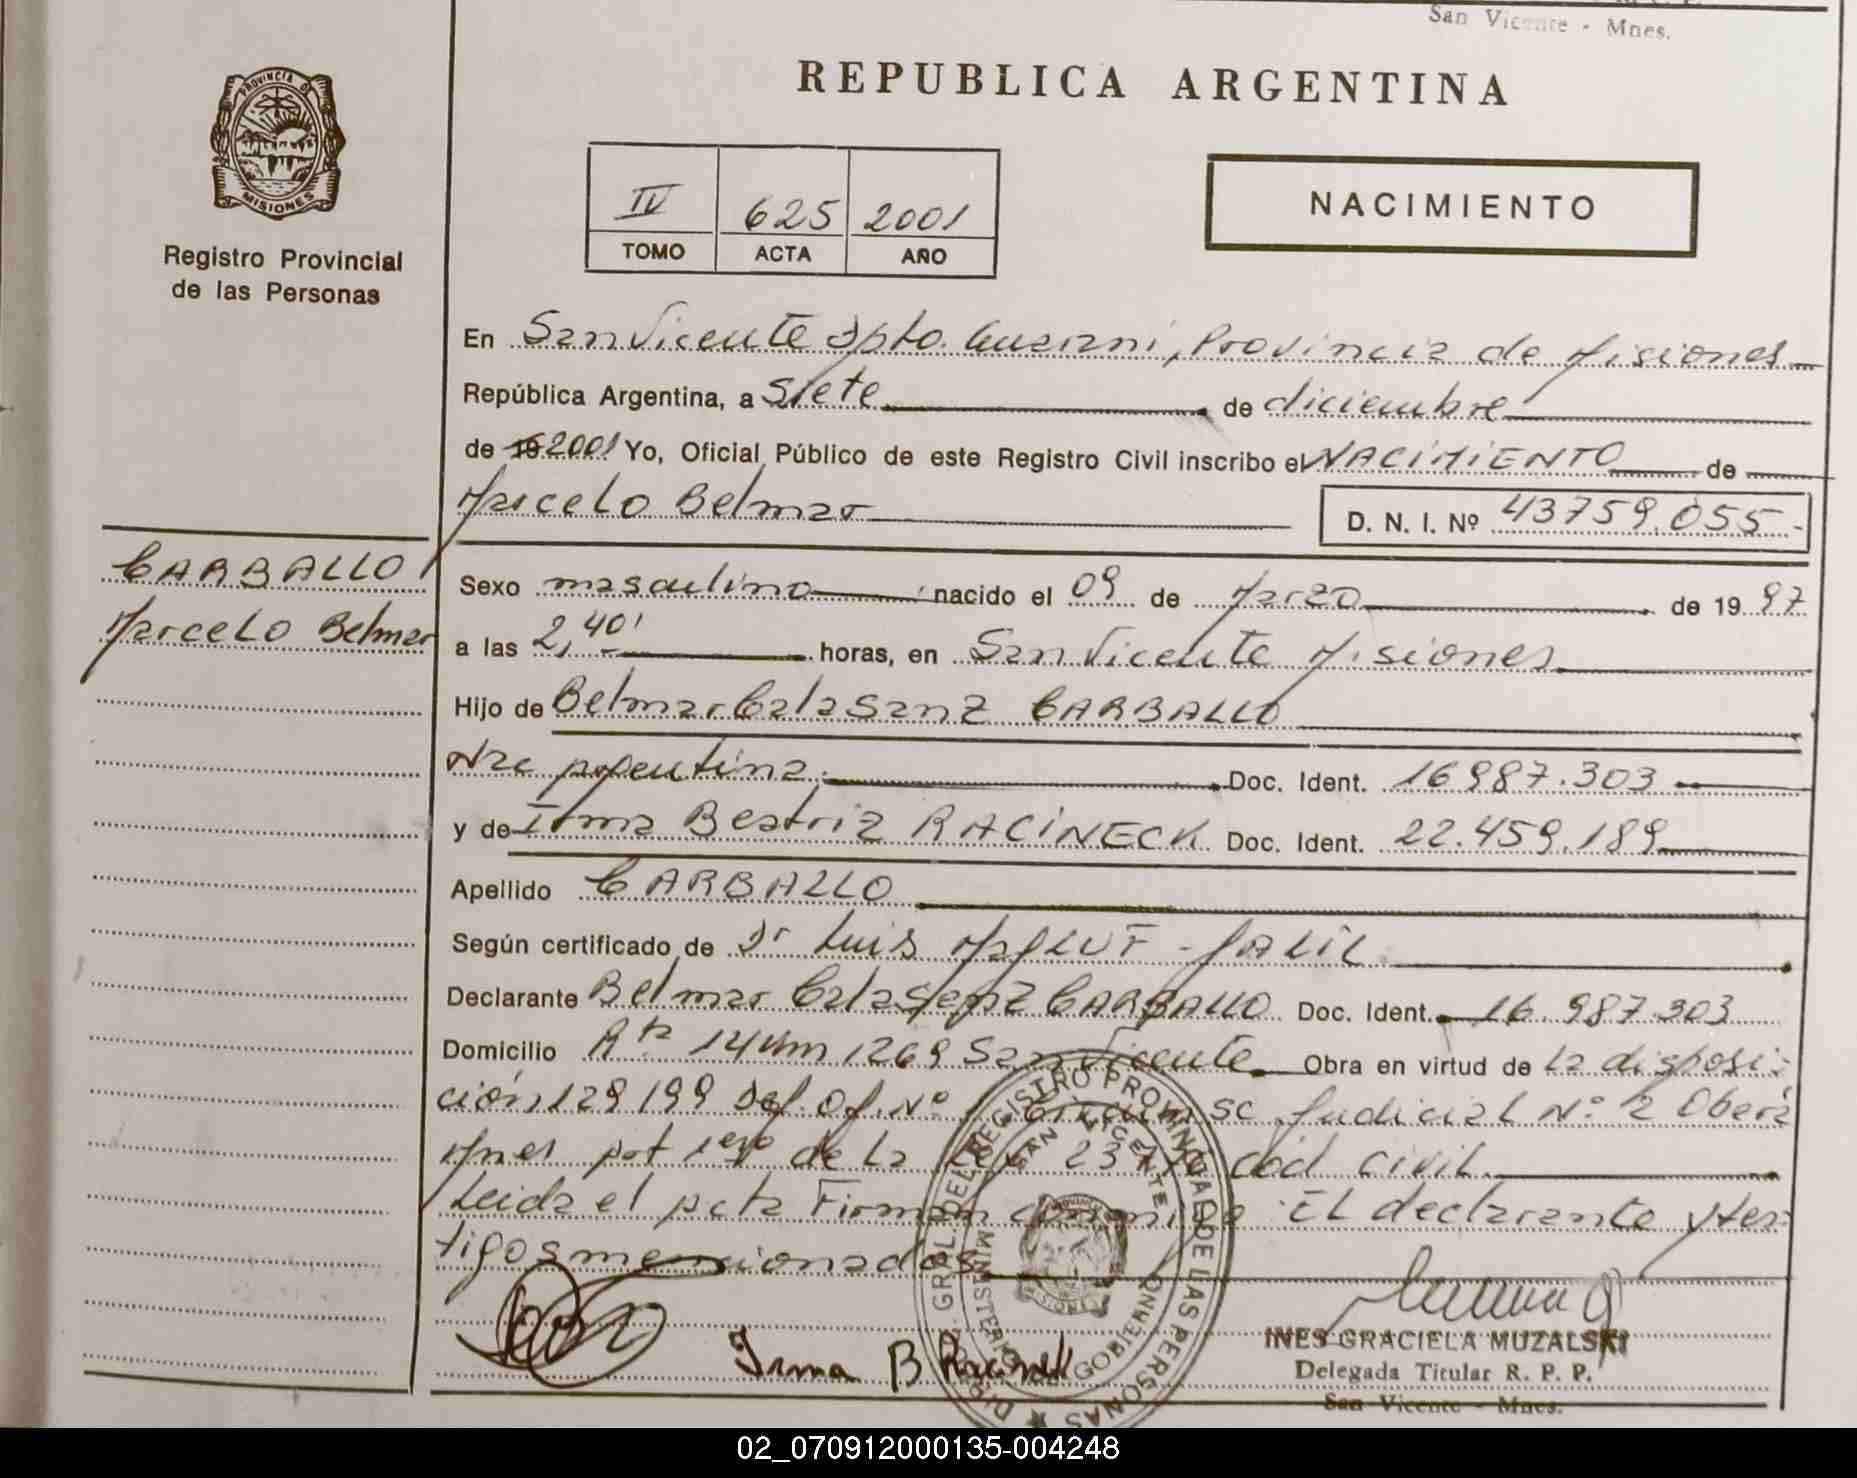 San Vicente - Mnes.
PROVINCIA D
MISIONES
Registro Provincial
de las Personas
REPUBLICA ARGENTINA
IV 625 2001
TOMO ACTA AÑO
NACIMIENTO
En San Vicente Dpto. Guarani, Provincia de Misiones
República Argentina, a siete de diciembre
de 19 2001 Yo, Oficial Público de este Registro Civil inscribo el NACIMIENTO de
Marcelo Belmar
D. N. I. Nº 43759.055-
CARBALLO
Marcelo Belmar
Sexo masculino nacido el 09 de Marzo de 19 97
a las 2,40' horas, en San Vicente Misiones
Hijo de Belmar Calasanz CARBALLO
Nac Argentina Doc. Ident. 16987.303
y de Irma Beatriz RACINECK Doc. Ident. 22.459.189
Apellido CARBALLO
Según certificado de Dr Luis MAGLUF - JALIL
Declarante Belmar Calasanz CARBALLO Doc. Ident. 16.987.303
Domicilio Rta 14 Km 1269 San Vicente Obra en virtud de la disposi-
ción 129/99 Def. Of. Nº 1 Circunsc Judicial Nº 2 Oberá
Mnes Art 1º de la Ley cód civil
Leida el acta Firman conmigo: El declarante y tes-
tigos mencionados
Irma B Racineck
INES GRACIELA MUZALSKI
Delegada Titular R. P. P.
San Vicente - Mnes.
GRAL DEL REGISTRO PROVINCIAL DE LAS PERSONAS
SAN VICENTE
MINISTERIO GOBIERNO
02_070912000135-004248